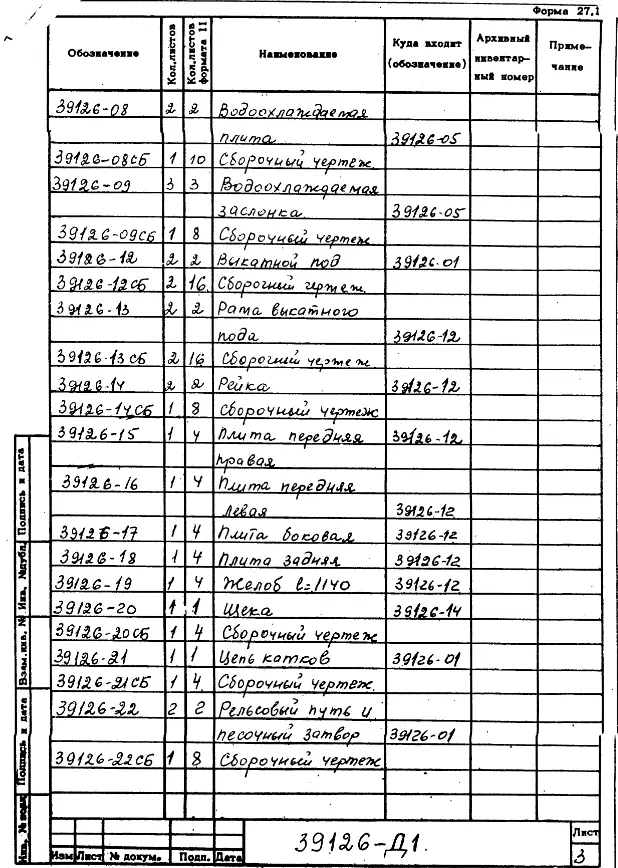 Форма 27,1
Обозначение Кол.листов Кол.листов формата 11 Наименование Куда входит (обозначение) Архивный инвентар- ный номер Приме- чание
39126-08 2 2 Водоохлаждаемая
плита 39126-05
39126-08СБ 1 10 Сборочный чертеж.
39126-09 3 3 Водоохлаждаемая
заслонка. 39126-05
39126-09СБ 1 8 Сборочный чертеж
39126-12 2 2 Выкатной под 39126-01
39126-12СБ 2 16. Сборочный чертеж.
39126-13 2 2 Рама выкатного
пода 39126-12
39126-13СБ 2 16 Сборочный чертеж
39126-14 2 2 Рейка 39126-12
39126-14СБ 1 8 Сборочный чертеж
39126-15 1 4 Плита передняя 39126-12
правая
39126-16 1 4 Плита передняя
левая 39126-12
39126-17 1 4 Плита боковая 39126-12
39126-18 1 4 Плита задняя 39126-12
39126-19 1 4 Желоб l=1140 39126-12
39126-20 1 1 Щека 39126-14
39126-20СБ 1 4 Сборочный чертеж
39126-21 1 1 Цепь катков 39126-01
39126-21СБ 1 4. Сборочный чертеж.
39126-22 2 2 Рельсовый путь и
песочный затвор 39126-01
39126-22СБ 1 8 Сборочный чертеж
Подпись и дата
Инв. №дубл.
Взам.инв. №
Подпись и дата
Инв. №подл
39126-Д1.
Лист
3
Изм Лист № докум. Подп. Дата